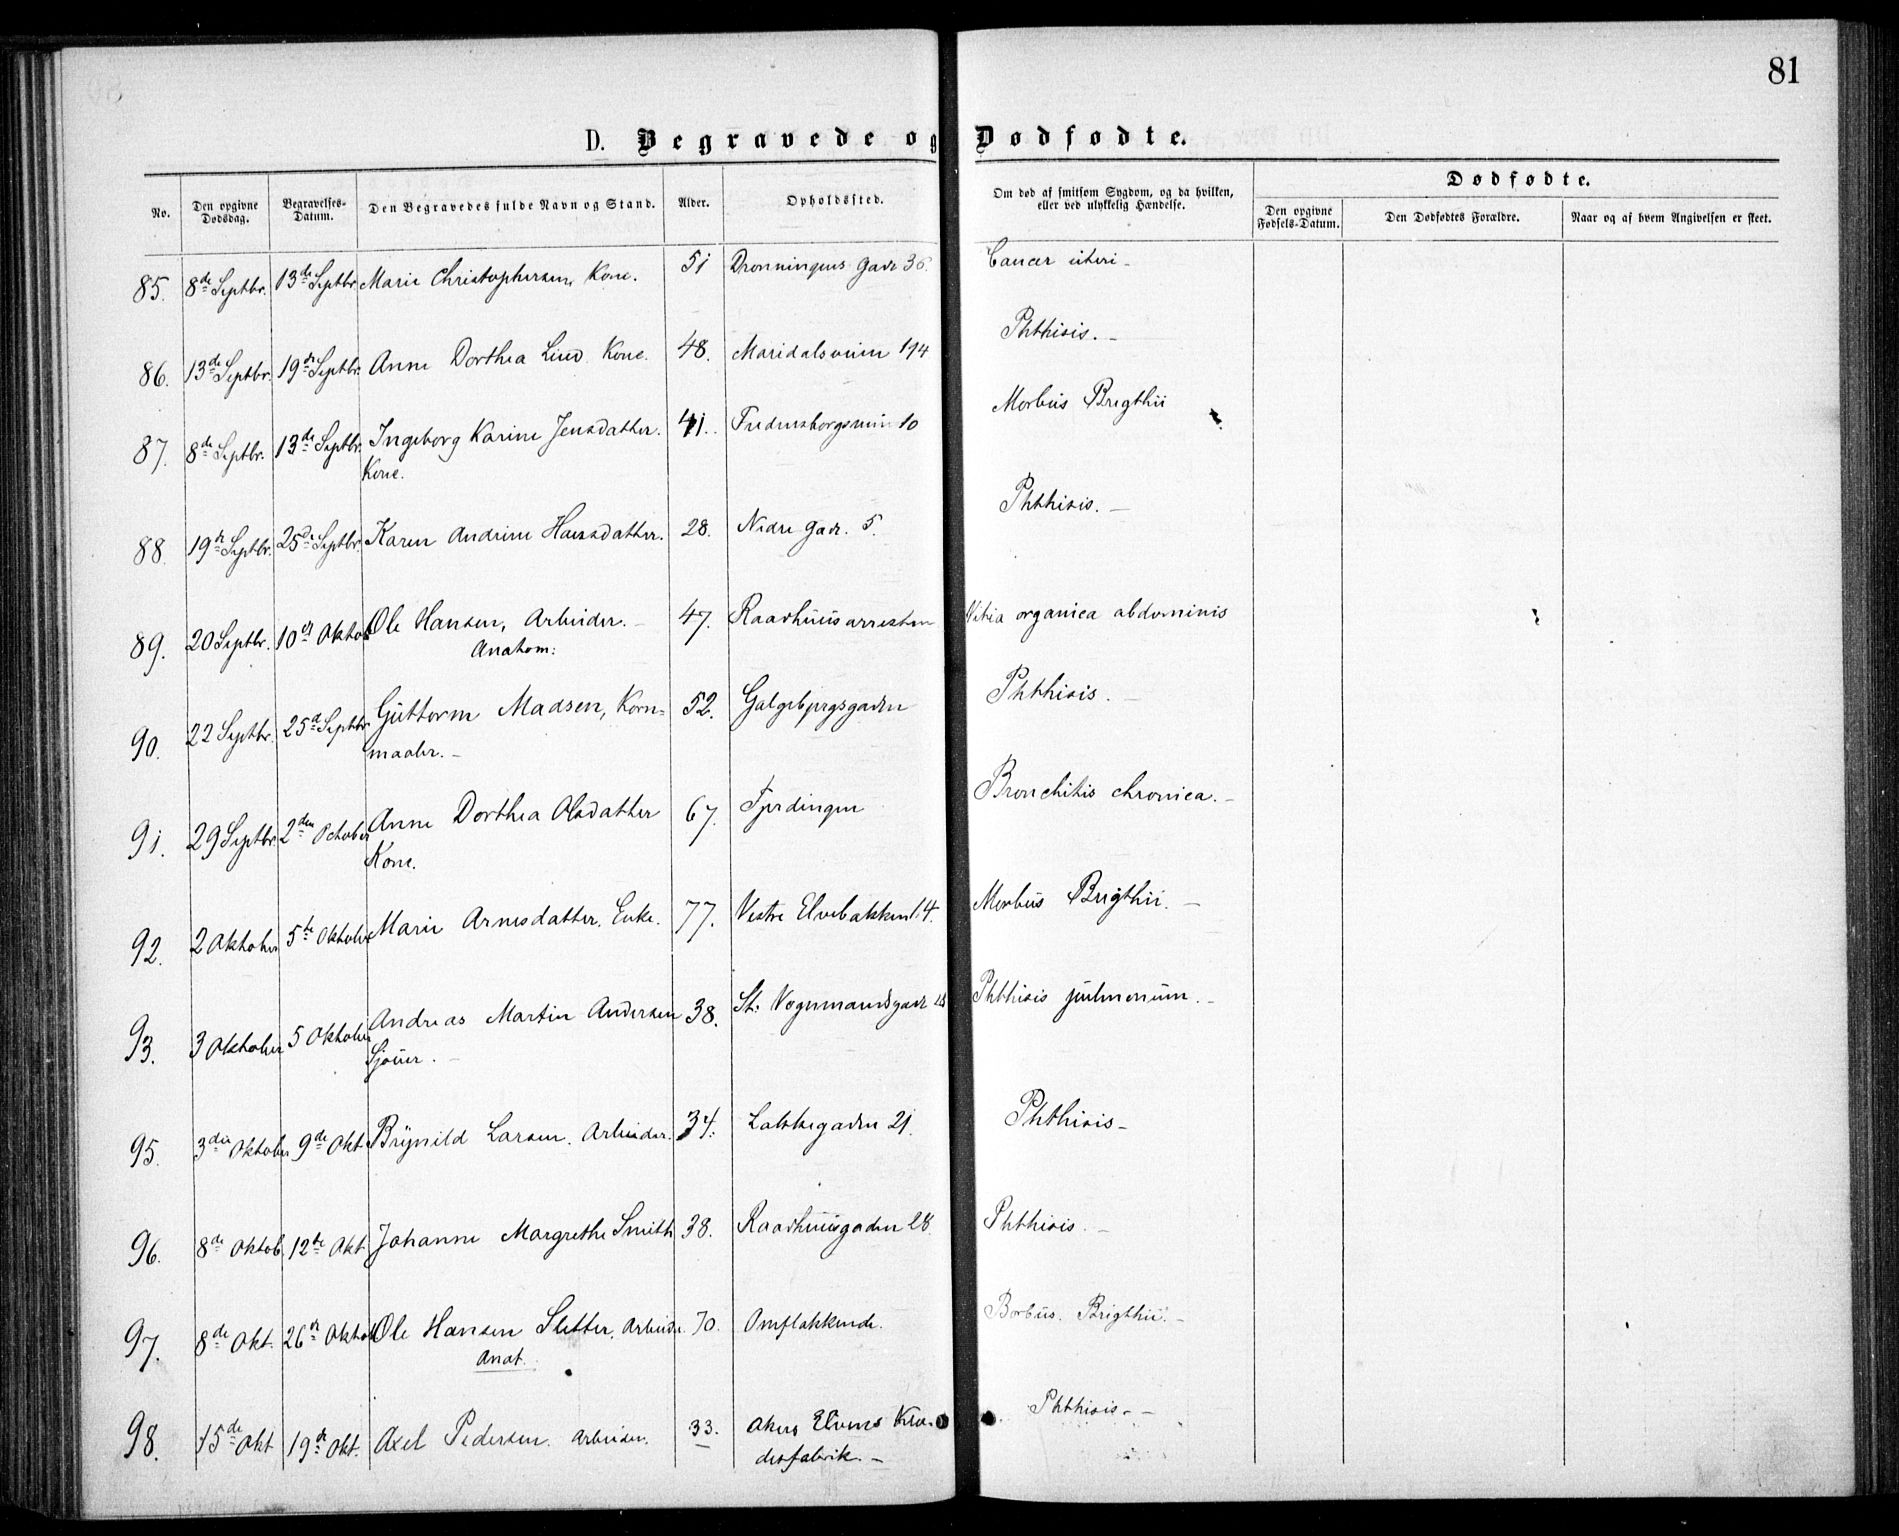 81
D. Begravede og Dødfødte.
No. Den opgivne Dødsdag. Begravelses-Datum. Den Begravedes fulde Navn og Stand. Alder. Opholdssted. Om død af smitsom Sygdom, og da hvilken, eller ved ulykkelig Hændelse. Dødfødte.
Den opgivne Fødsels-Datum. Den Dødfødtes Forældre. Naar og af hvem Angivelsen er skeet.
85. 8de Septbr. 13de Septbr Marie Christophersen, Kone. 51 Dronningens Gade 36. Cancer uteri –
86. 13de Septbr. 19de Septbr. Anne Dorthea Lind. Kone. 48. Maridalsveien 194 Phthisis. –
87. 8de Septbr. 13de Septbr. Ingeborg Karine Jensdatter. 41. Fredensborgsveien 10 Morbus Brigthii
Kone.
88. 19de Septbr. 25de Septbr. Karen Andrine Hansdatter. 28. Nedre Gade. 5. Phthisis. –
89. 20 Septbr. 10de Oktob Ole Hansen, Arbeider. – 47. Raadhuusarresten Vitia organica abdominis
Anatom:
90. 22 Septbr. 25de Septbr Guttorm Madsen, Korn= 52. Galgebjergsgaden Phthisis. –
maaler. –
91. 29 Septbr. 2den October Anne Dorthea Olsdatter 67. Fjerdingen Bronchitis chronica. –
Kone.
92. 2 Oktober 5te Oktober Marie Arnesdatter. Enke. 77. Vestre Elvebakken 14. Morbus Brigthii. –
93. 3 Oktober 5 Oktober Andreas Martin Andersen 38. St. Vognmandsgade Phthisis pulmonum. –
Sjouer. –
95. 3die Oktober 9de Okt Brynild Larsen. Arbeider. 34. Lakkegaden 21. Phthisis –
96. 8de Oktob. 12te Okt. Johanne Margrethe Smith 38. Raadhuusgaden 28. Phthisis. –
97. 8de Okt. 26de Oktob Ole Hansen Sletter. Arbeider. 70. Omflakkende. Borbus. Brigthii. –
Anat.
98. 15de Okt 19de Okt. Axel Pedersen. Arbeider. 33. Akers Elvens Klæ- Phthisis. –
desfabrik. –